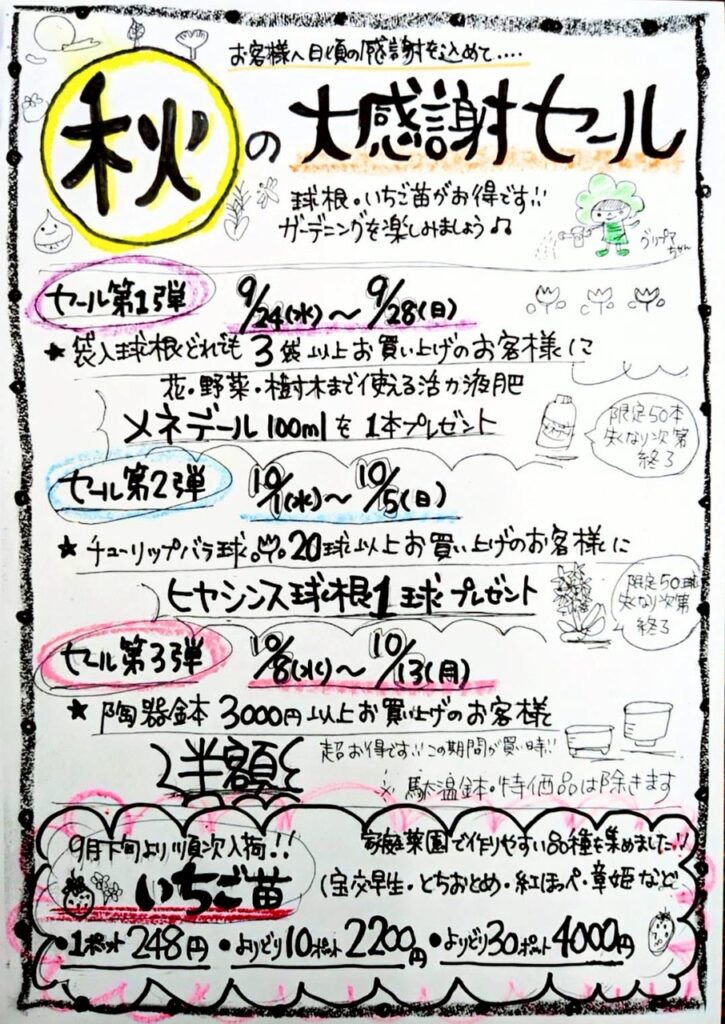 お客様へ日頃の感謝を込めて....
秋の大感謝セール
球根・いちご苗がお得です!!
ガーデニングを楽しみましょう♫
グリプマちゃん
セール第1弾 9/24(水)～9/28(日)
★袋入球根どれでも3袋以上お買い上げのお客様に
花・野菜・樹木まで使える活力液肥
メネデール100mlを1本プレゼント
限定50本
失くなり次第
終了
セール第2弾 10/1(水)～10/5(日)
★チューリップバラ球 20球以上お買い上げのお客様に
ヒヤシンス球根1球プレゼント
限定50球
失くなり次第
終了
セール第3弾 10/8(水)～10/13(月)
★陶器鉢3000円以上お買い上げのお客様
半額
超お得です!!この期間が買い時!!
※駄温鉢・特価品は除きます
9月下旬より順次入荷!!
いちご苗
家庭菜園で作りやすい品種を集めました!!
(宝交早生・とちおとめ・紅ほっぺ・章姫など
・1ポット248円・よりどり10ポット2200円・よりどり30ポット4000円